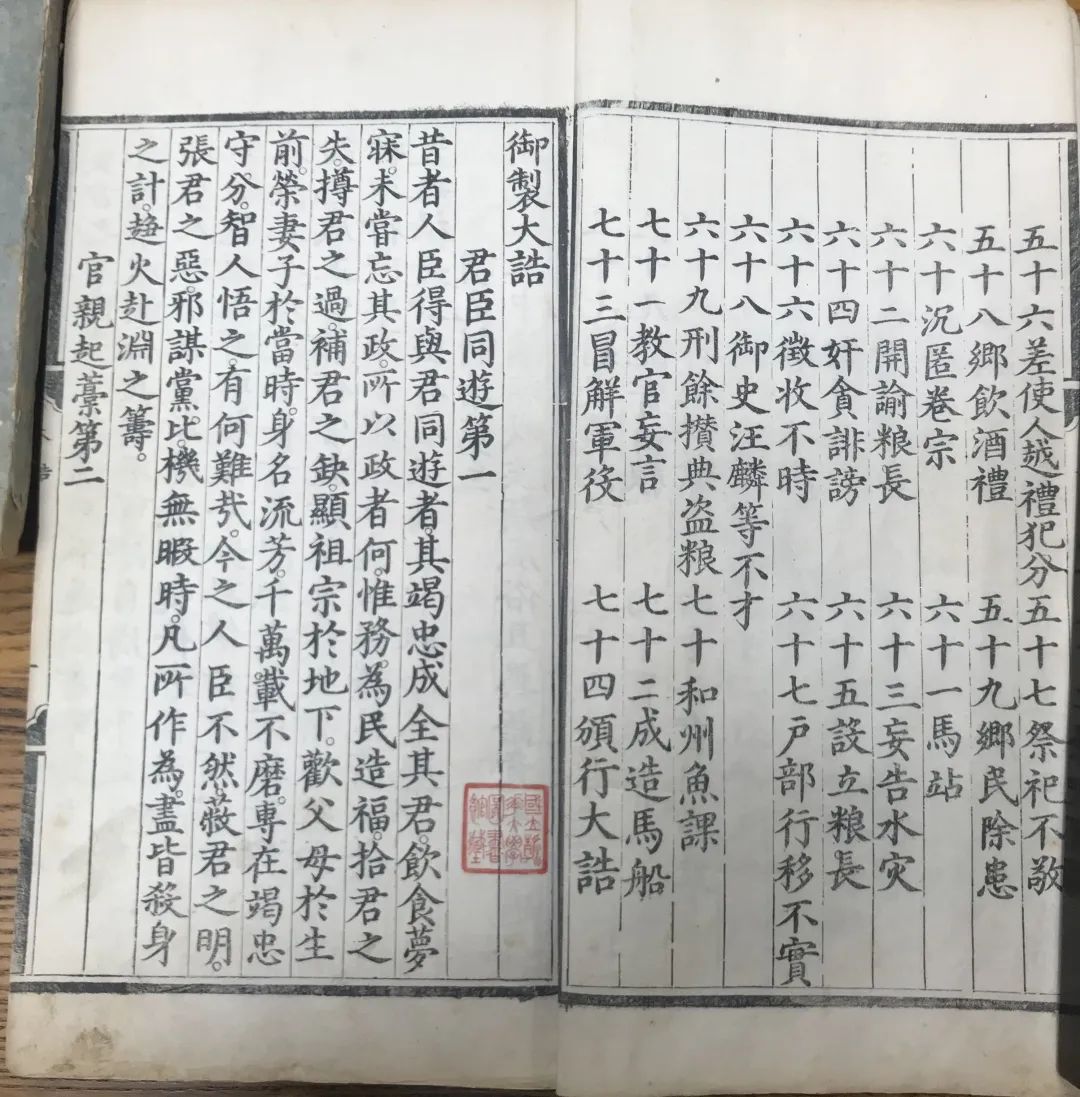 五十六差使人越禮犯分五十七祭祀不敬
五十八鄉飲酒禮 五十九鄉民除患
六十沉匿卷宗 六十一馬站
六十二開諭粮長 六十三妄告水灾
六十四奸貪誹謗 六十五設立粮長
六十六徵收不時 六十七戶部行移不實
六十八御史汪麟等不才
六十九刑餘攅典盜粮七十和州魚課
七十一教官妄言 七十二成造馬船
七十三冒解軍役 七十四頒行大誥
御製大誥
君臣同遊第一
昔者人臣得與君同遊者。其竭忠成全其君。飲食夢
寐。未嘗忘其政。所以政者何。惟務為民造福。拾君之
失。撙君之過。補君之缺。顯祖宗於地下。歡父母於生
前。榮妻子於當時。身名流芳。千萬載不磨。專在竭忠
守分。智人悟之。有何難㢤。今之人臣不然。蔽君之明。
張君之惡。邪謀黨比。機無暇時。凡所作為。盡皆殺身
之計。趍火赴淵之籌。
官親起藁第二